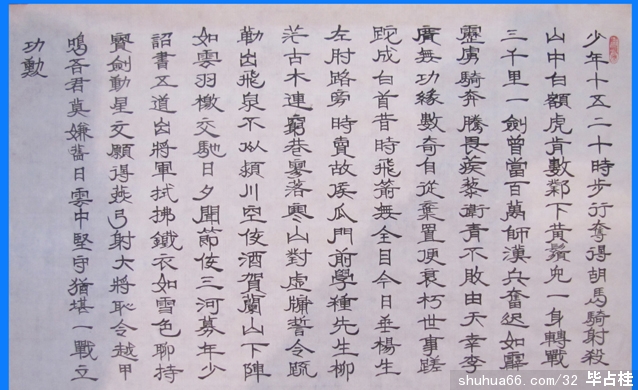 少年十五二十時步行奪得胡馬騎射殺
山中白額虎肯數鄴下黃鬚兒一身轉戰
三千里一劍曾當百萬師漢兵奮迅如霹
靂虜騎奔騰畏蒺藜衛青不敗由天幸李
廣無功緣數奇自從棄置便衰朽世事蹉
跎成白首昔時飛箭無全目今日垂楊生
左肘路旁時賣故侯瓜門前學種先生柳
茫古木連窮巷寥落寒山對虛牖誓令疏
勒出飛泉不似潁川空使酒賀蘭山下陣
如雲羽檄交馳日夕聞節使三河募年少
詔書五道出將軍試拂鐵衣如雪色聊持
寶劍動星文願得燕弓射大將恥令越甲
鳴吾君莫嫌舊日雲中堅守猶堪一戰立
功勳
shuhua66.com/32 毕占桂